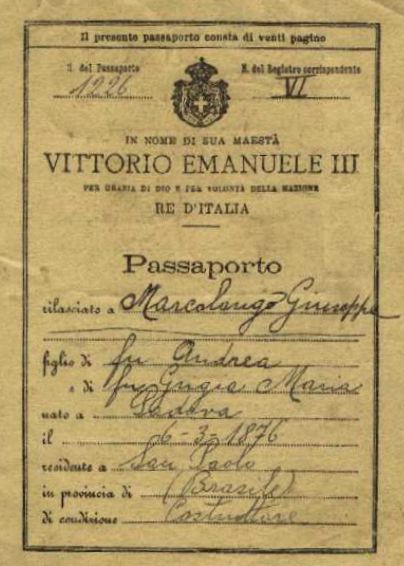 Il presente passaporto consta di venti pagine
N. del Passaporto
N. del Registro corrispondente
1226
VI
IN NOME DI SUA MAESTÀ
VITTORIO EMANUELE III
PER GRAZIA DI DIO E PER VOLONTÀ DELLA NAZIONE
RE D'ITALIA
Passaporto
rilasciato a Marcolongo Giuseppe
figlio di fu Andrea
e di fu Grigia Maria
nato a Padova
il 6-3-1876
residente a San Paolo
in provincia di (Brasile)
di condizione Costruttore